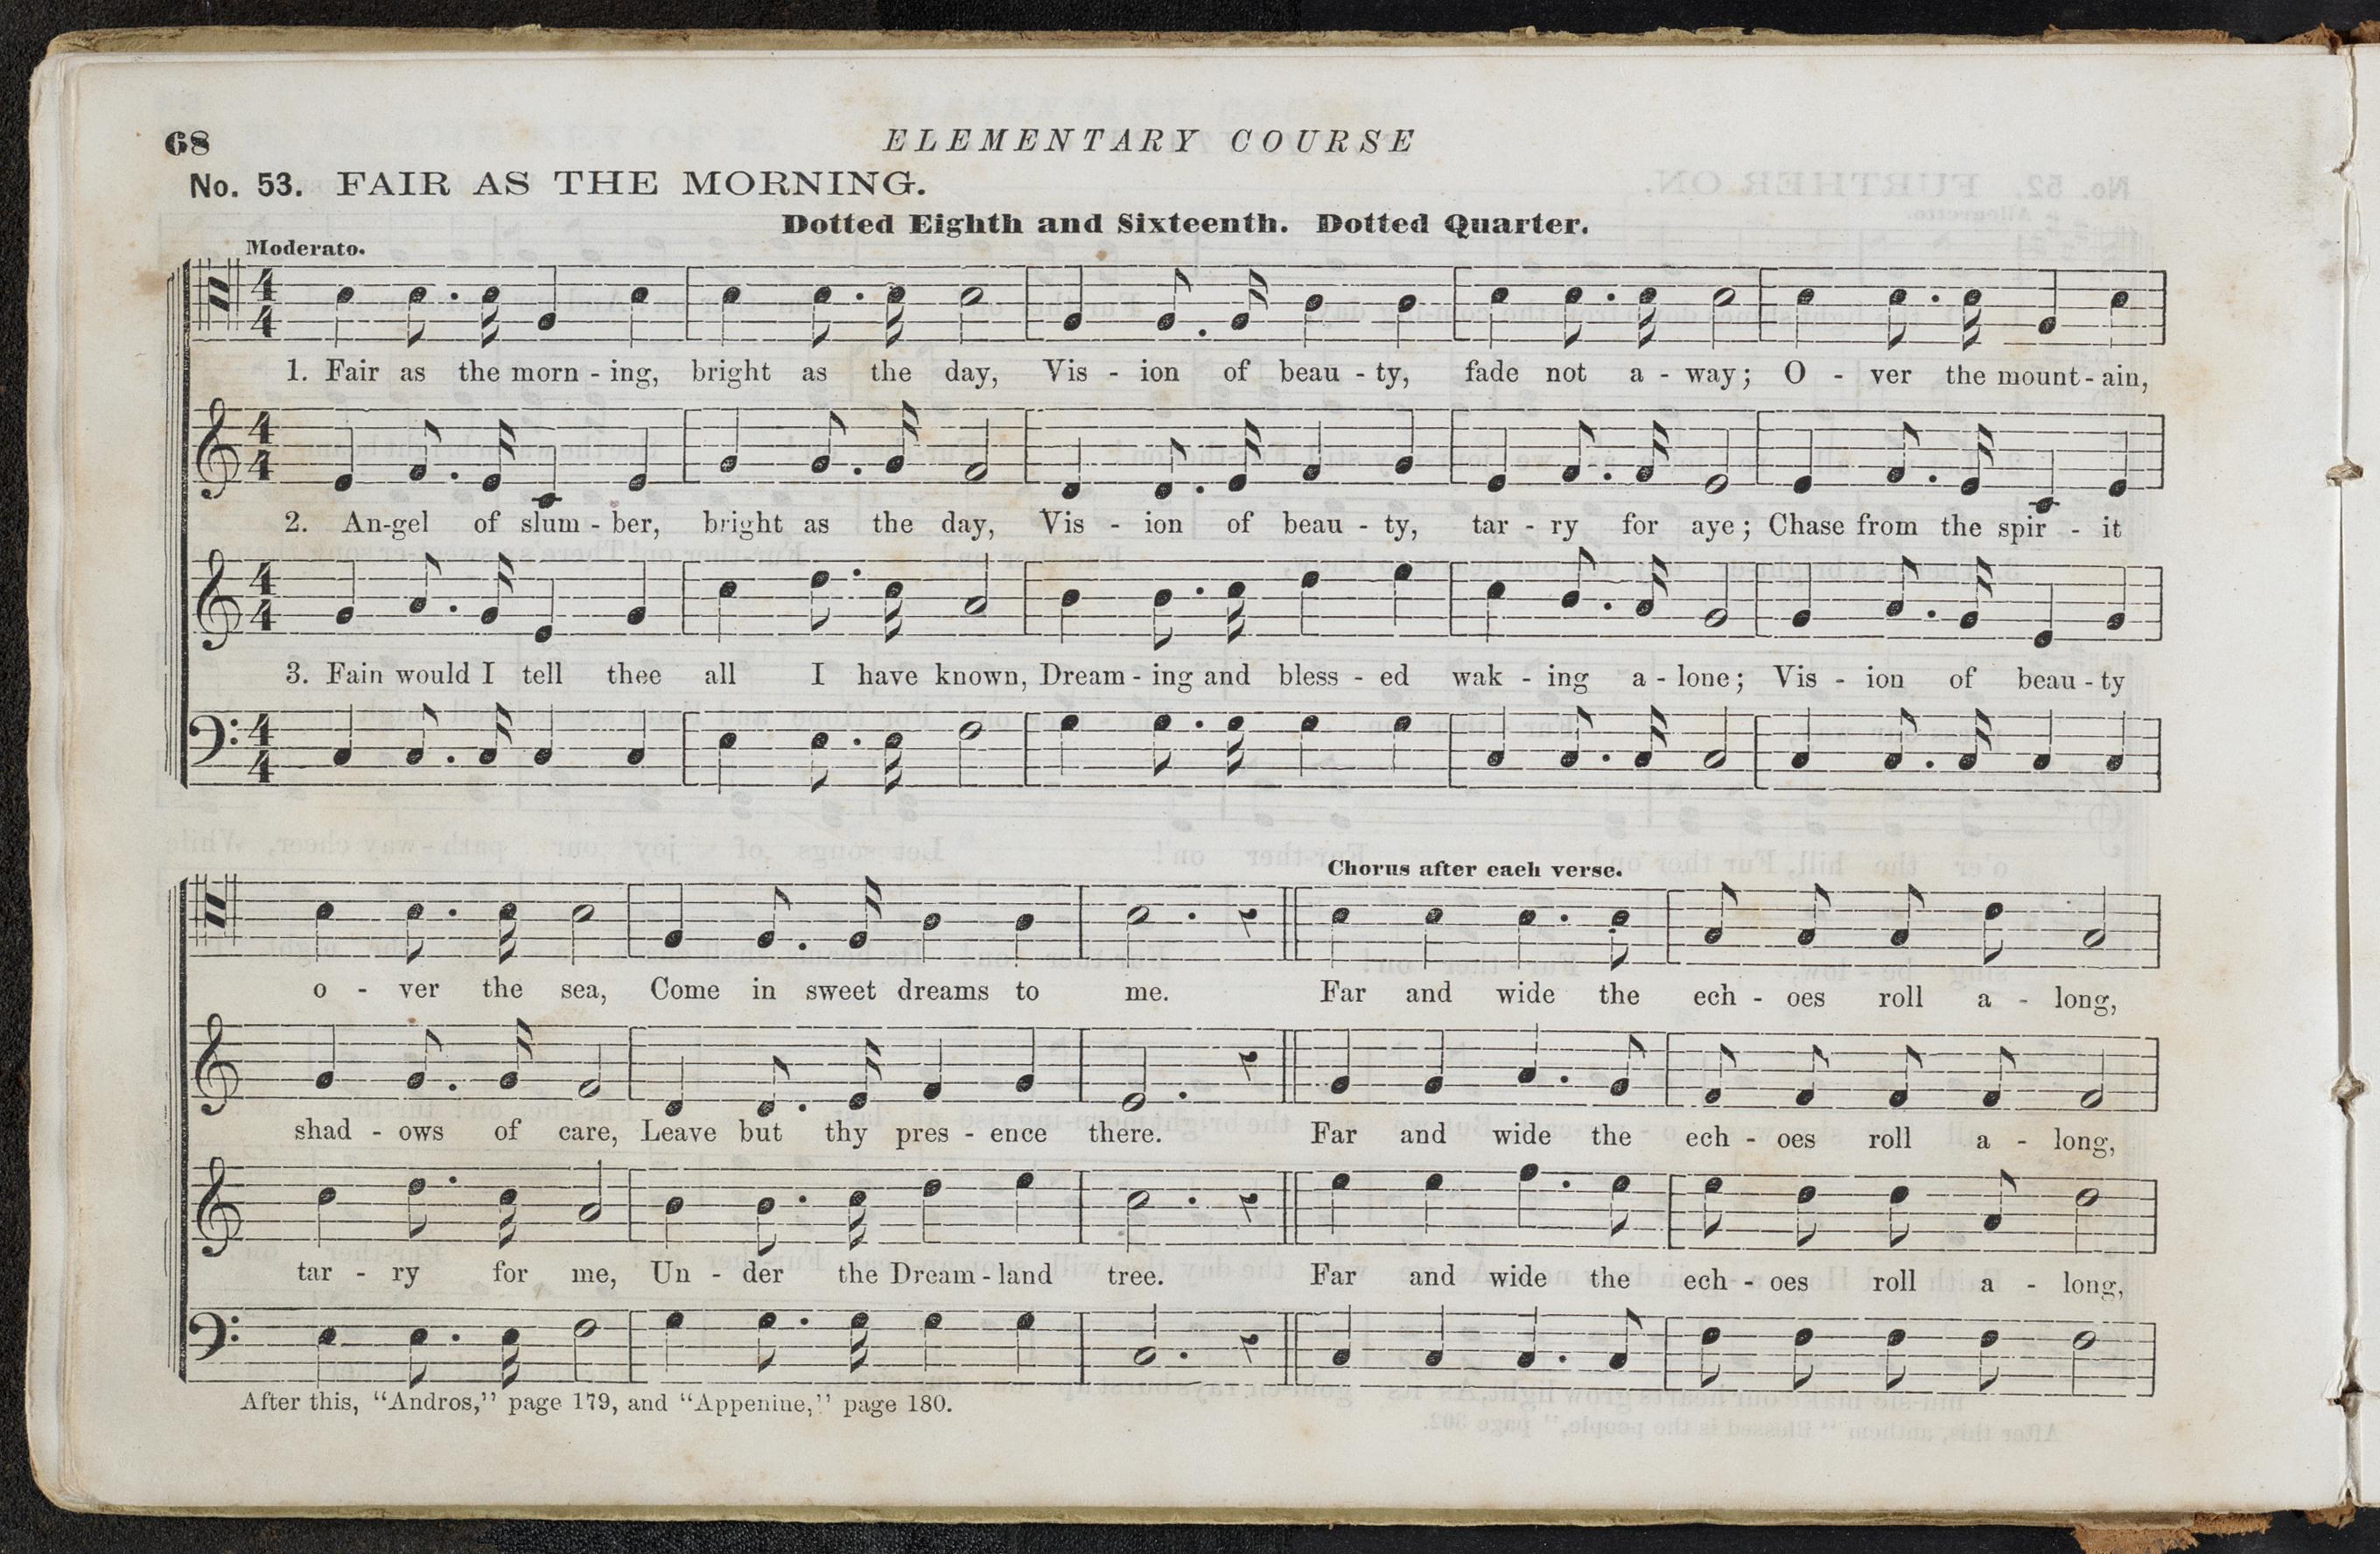 68
ELEMENTARY COURSE
No. 53. FAIR AS THE MORNING.
Dotted Eighth and Sixteenth. Dotted Quarter.
Moderato.
4 4
1. Fair as the morn - ing, bright as the day, Vis - ion of beau - ty, fade not a - way; O - ver the mount - ain,
4 4
2. An-gel of slum - ber, bright as the day, Vis - ion of beau - ty, tar - ry for aye; Chase from the spir - it
4 4
3. Fain would I tell thee all I have known, Dream - ing and bless - ed wak - ing a - lone; Vis - ion of beau - ty
4 4
Chorus after each verse.
o - ver the sea, Come in sweet dreams to me. Far and wide the ech - oes roll a - long,
shad - ows of care, Leave but thy pres - ence there. Far and wide the ech - oes roll a - long,
tar - ry for me, Un - der the Dream - land tree. Far and wide the ech - oes roll a - long,
After this, "Andros," page 179, and "Appenine," page 180.